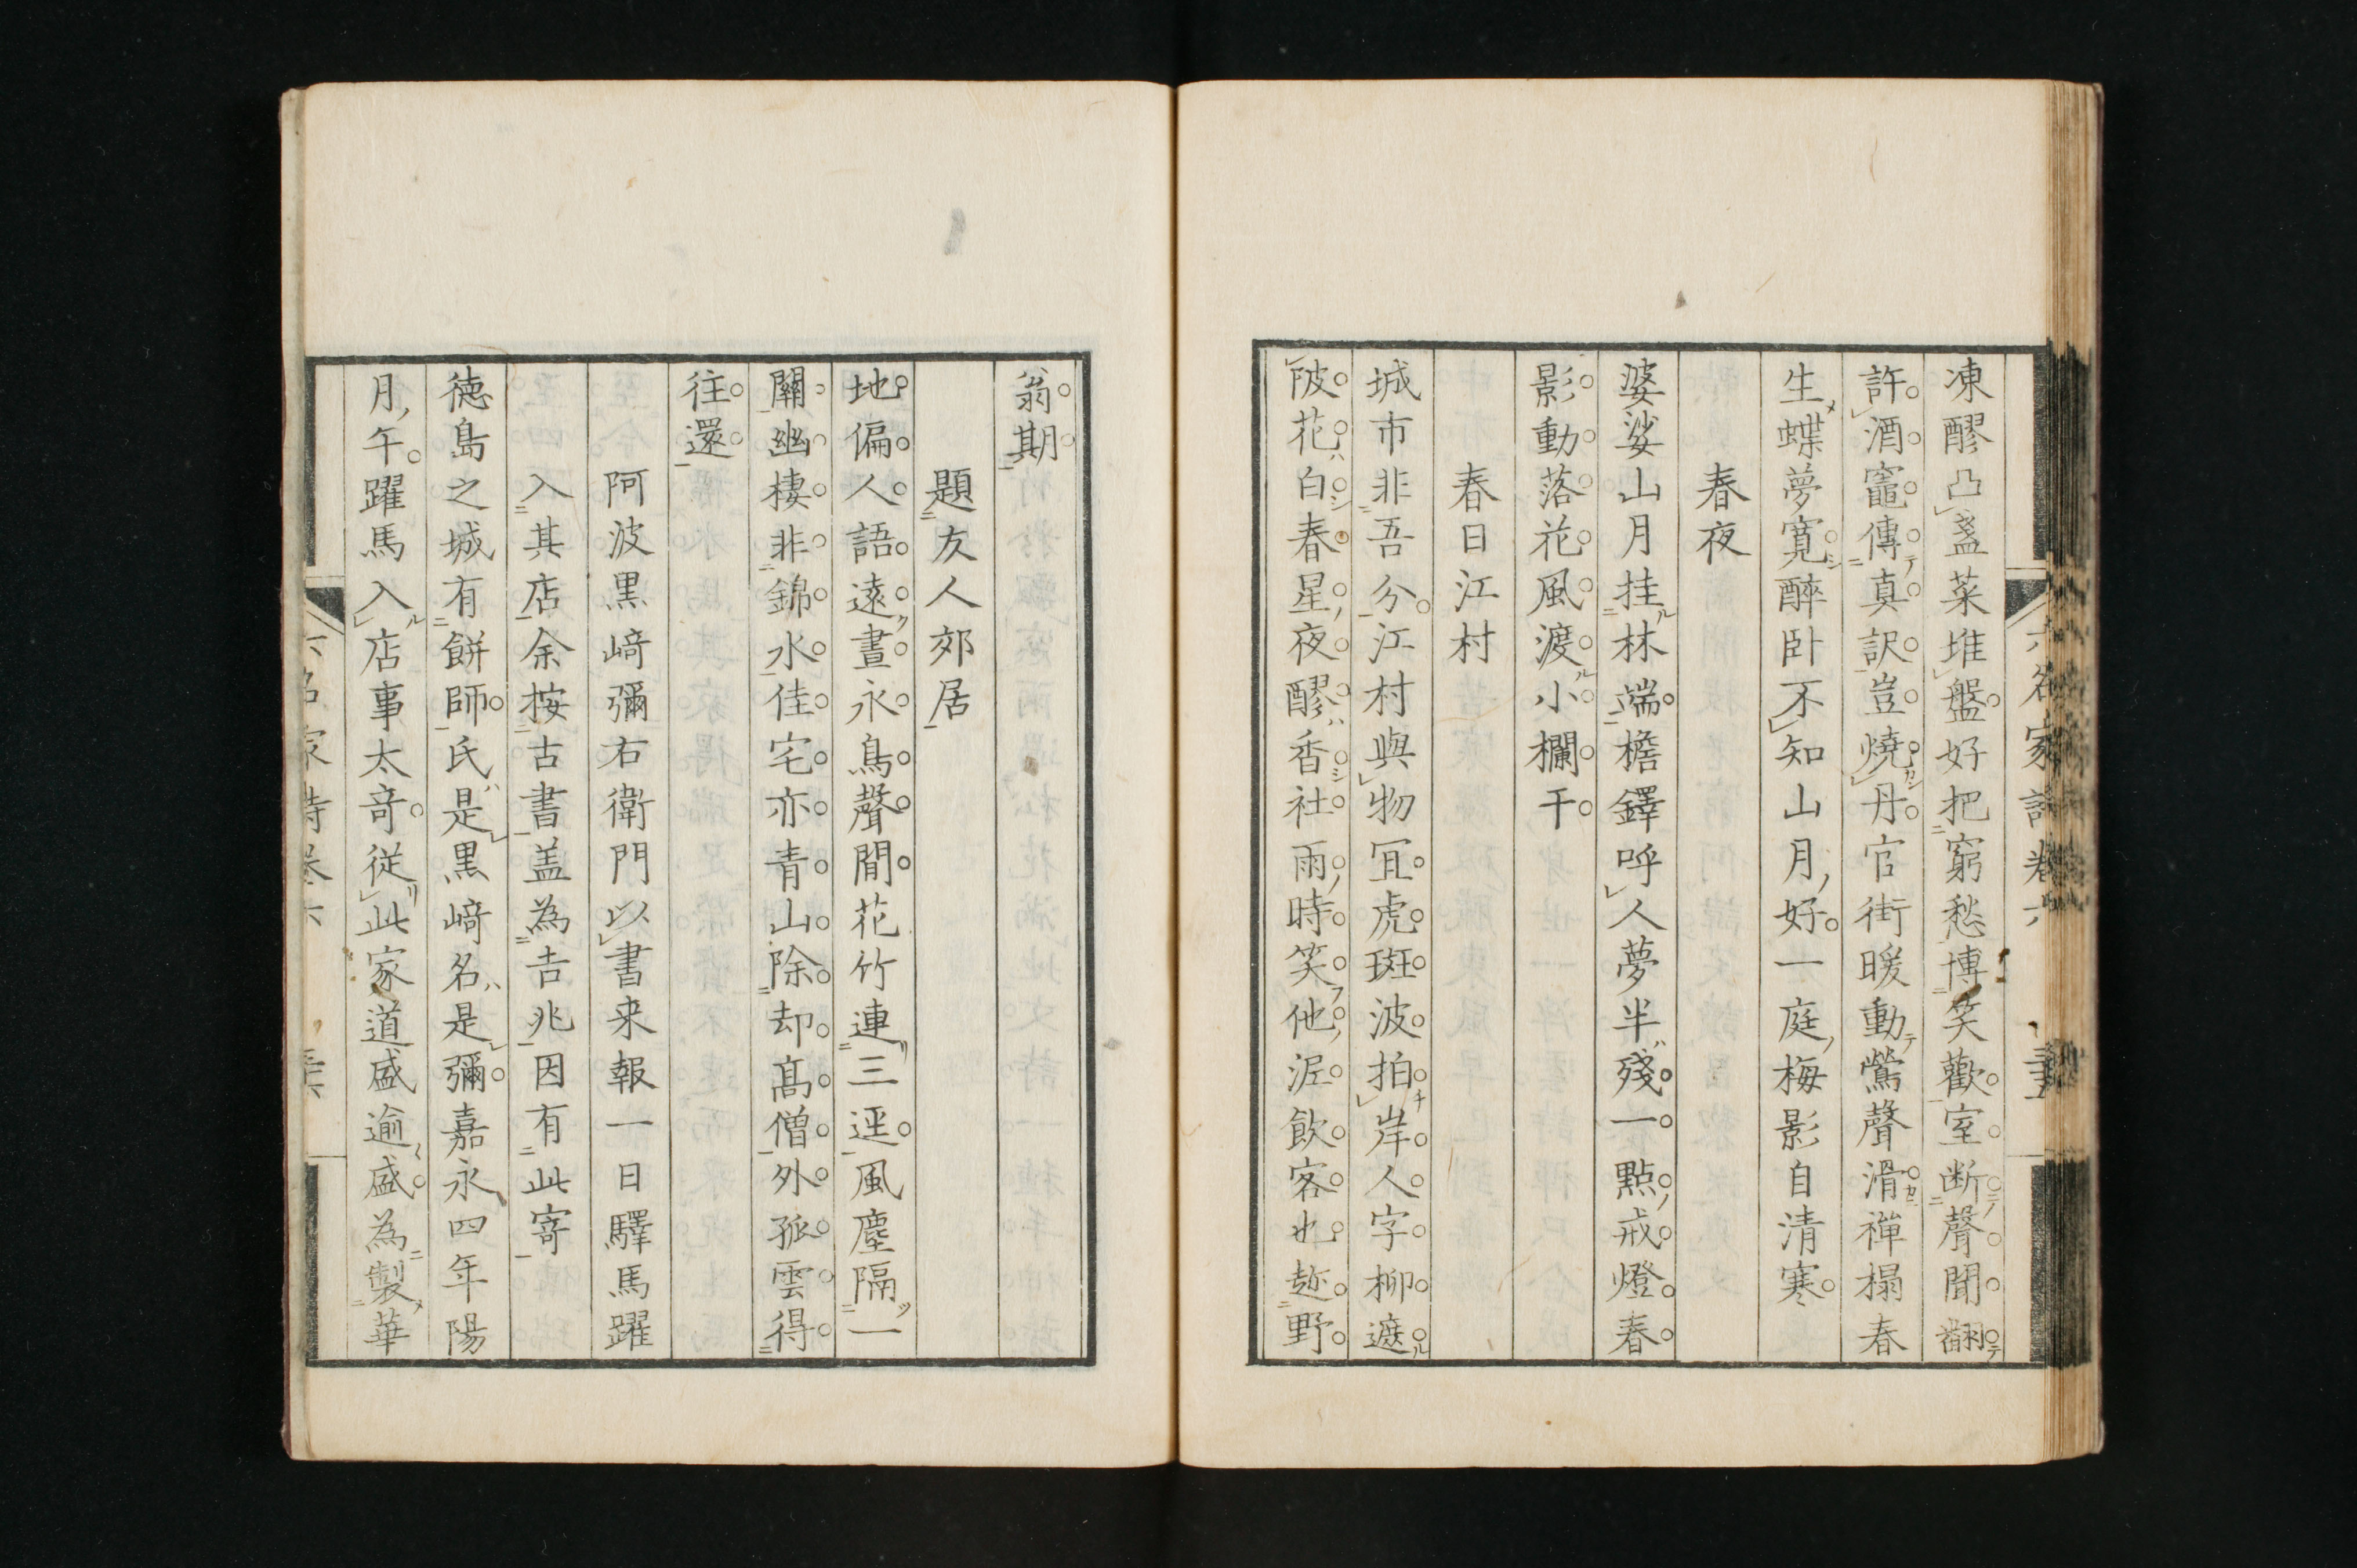 凍醪凸盞菜堆盤好把窮愁博笑歡室断聲聞翻
許酒竈傳真訳豈燒丹官街暖動鶯聲滑禅榻春
生蝶夢寛醉卧不知山月好一庭梅影自清寒
春夜
婆娑山月挂林端檐鐸呼人夢半殘一點戒燈春
影動落花風渡小欄干
春日江村
城市非吾分江村與物宜虎斑波拍岸人字柳遮
陂花白春星夜醪香社雨時笑他泥飲客也趁野
翁期
題友人郊居
地偏人語遠晝永鳥聲閒花竹連三逕風塵隔一
關幽棲非錦水佳宅亦青山除却髙僧外孤雲得
往還
阿波黒﨑彌右衛門以書来報一日驛馬躍
入其店余按古書盖為吉兆因有此寄
徳島之城有餅師氏是黒﨑名是彌嘉永四年陽
月午躍馬入店事太竒従此家道盛逾盛為製華
六名家詩卷六